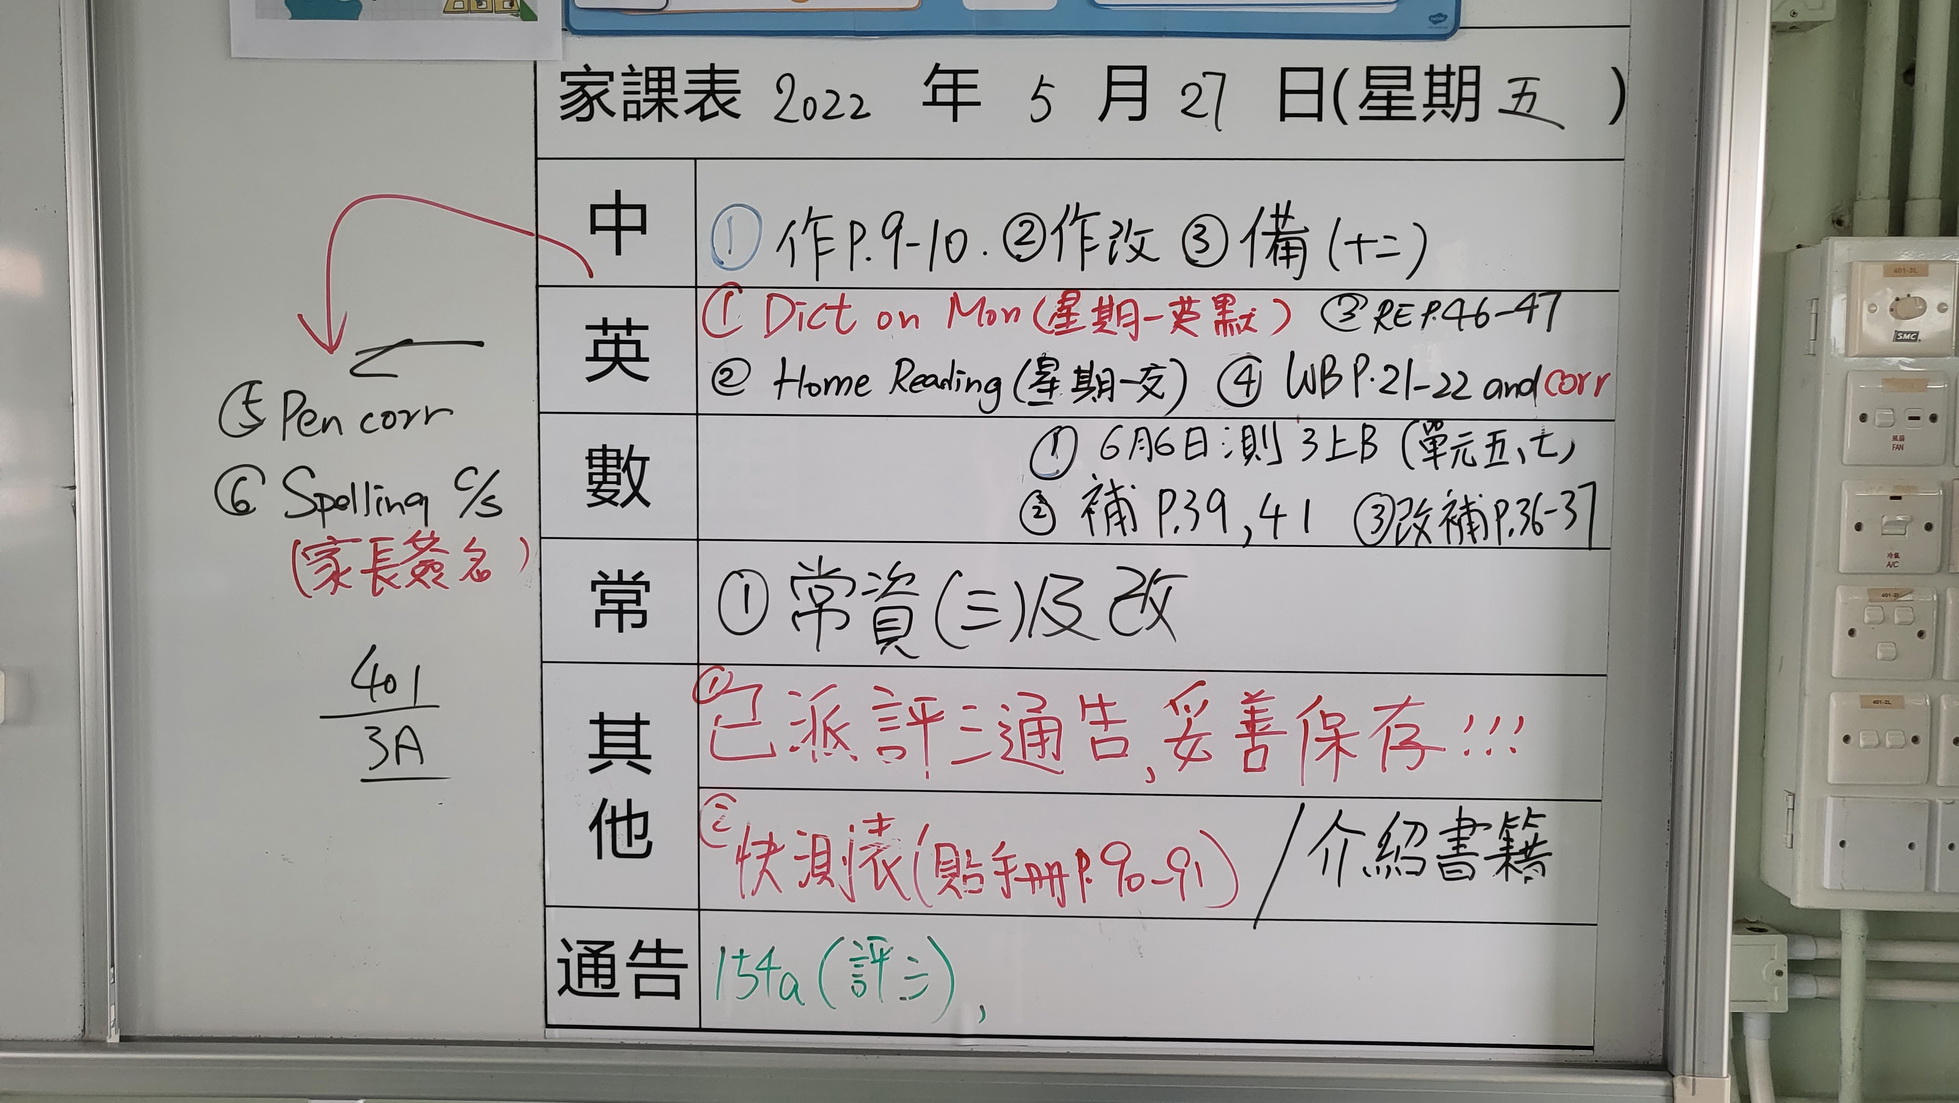 家課表 2022 年 5 月 27 日(星期五)
中 ① 作P.9-10. ②作改 ③ 備(十二)
英 ① Dict on Mon(星期一英默) ③ RE P.46-47
② Home Reading(星期一交) ④ WB P.21-22 and corr
⑤ Pen corr
⑥ Spelling c/s
(家長簽名)
數 ① 6月6日測 3上B (單元五、七)
② 補 P.39, 41 ③改補P.36-37
常 ① 常資(三)及改
其他 ① 已派評三通告,妥善保存!!!
② 快測表(貼手冊P.90-91) / 介紹書籍
通告 154a(評三),
401
3A
401-2L
SMC
風扇
FAN
冷氣
A/C
401-2L